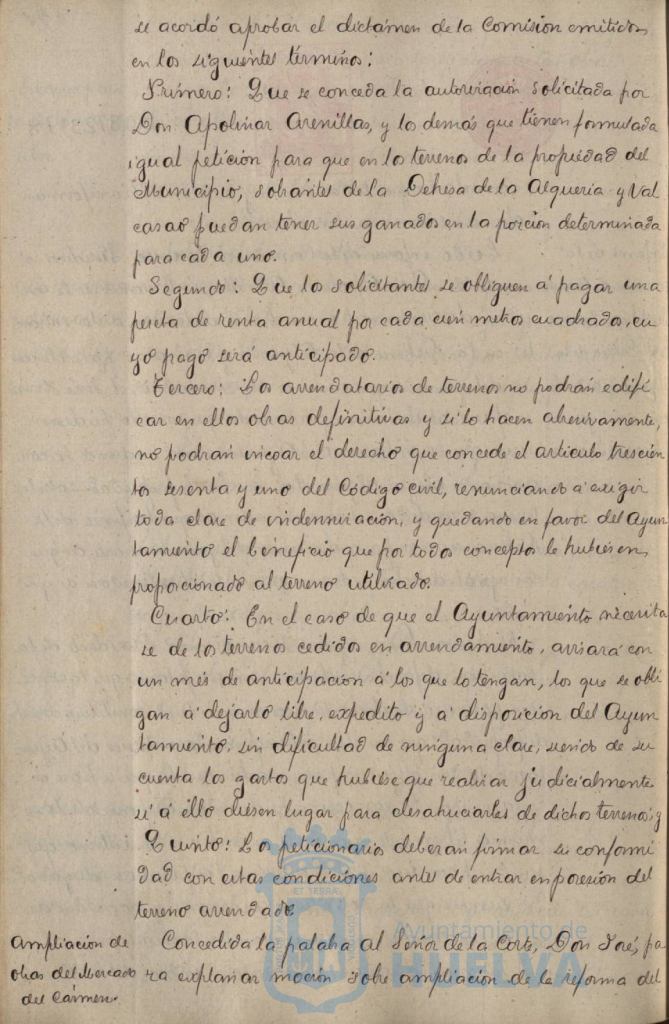 se acordó aprobar el dictámen de la Comision emitidos
en los siguientes términos:
Primero: Que se conceda la autorización solicitada por
Don Apolinar Arenillas, y los demás que tienen formulada
igual petición para que en los terrenos de la propiedad del
Municipio, sobrantes de la Dehesa de la Alqueria y Val
casao puedan tener sus ganados en la porción determinada
para cada uno.
Segundo: Que los solicitantes se obliguen á pagar una
peseta de renta anual por cada cien metros cuadrados, cu
yo pago será anticipado.
Tercero: Los arrendatarios de terrenos no podrán edifi
car en ellos obras definitivas y si lo hacen abusivamente,
no podrán invocar el derecho que concede el artículo trescien
tos sesenta y uno del Código civil, renunciando á exigir
toda clase de indemnización, y quedando en favor del Ayun
tamiento el beneficio que por todos conceptos le hubiesen
proporcionado al terreno utilizado.
Cuarto: En el caso de que el Ayuntamiento necesita
se de los terrenos cedidos en arrendamiento, avisará con
un mes de anticipación á los que lo tengan, los que se obli
gan á dejarlo libre, expedito y á disposición del Ayun
tamiento, sin dificultad de ninguna clase, siendo de su
cuenta los gastos que hubiese que realizar judicialmente
si á ello diesen lugar para desahuciarles de dichos terrenos; y
Quinto: Los peticionarios deberán firmar su conformi
dad con estas condiciones antes de entrar en posesión del
terreno arrendado.
Ampliación de
obras del Mercado
del Cármen.
Concedida la palabra al Señor de la Corte, Don José, pa
ra explanar moción sobre ampliación de la reforma del
Ayuntamiento de
HUELVA